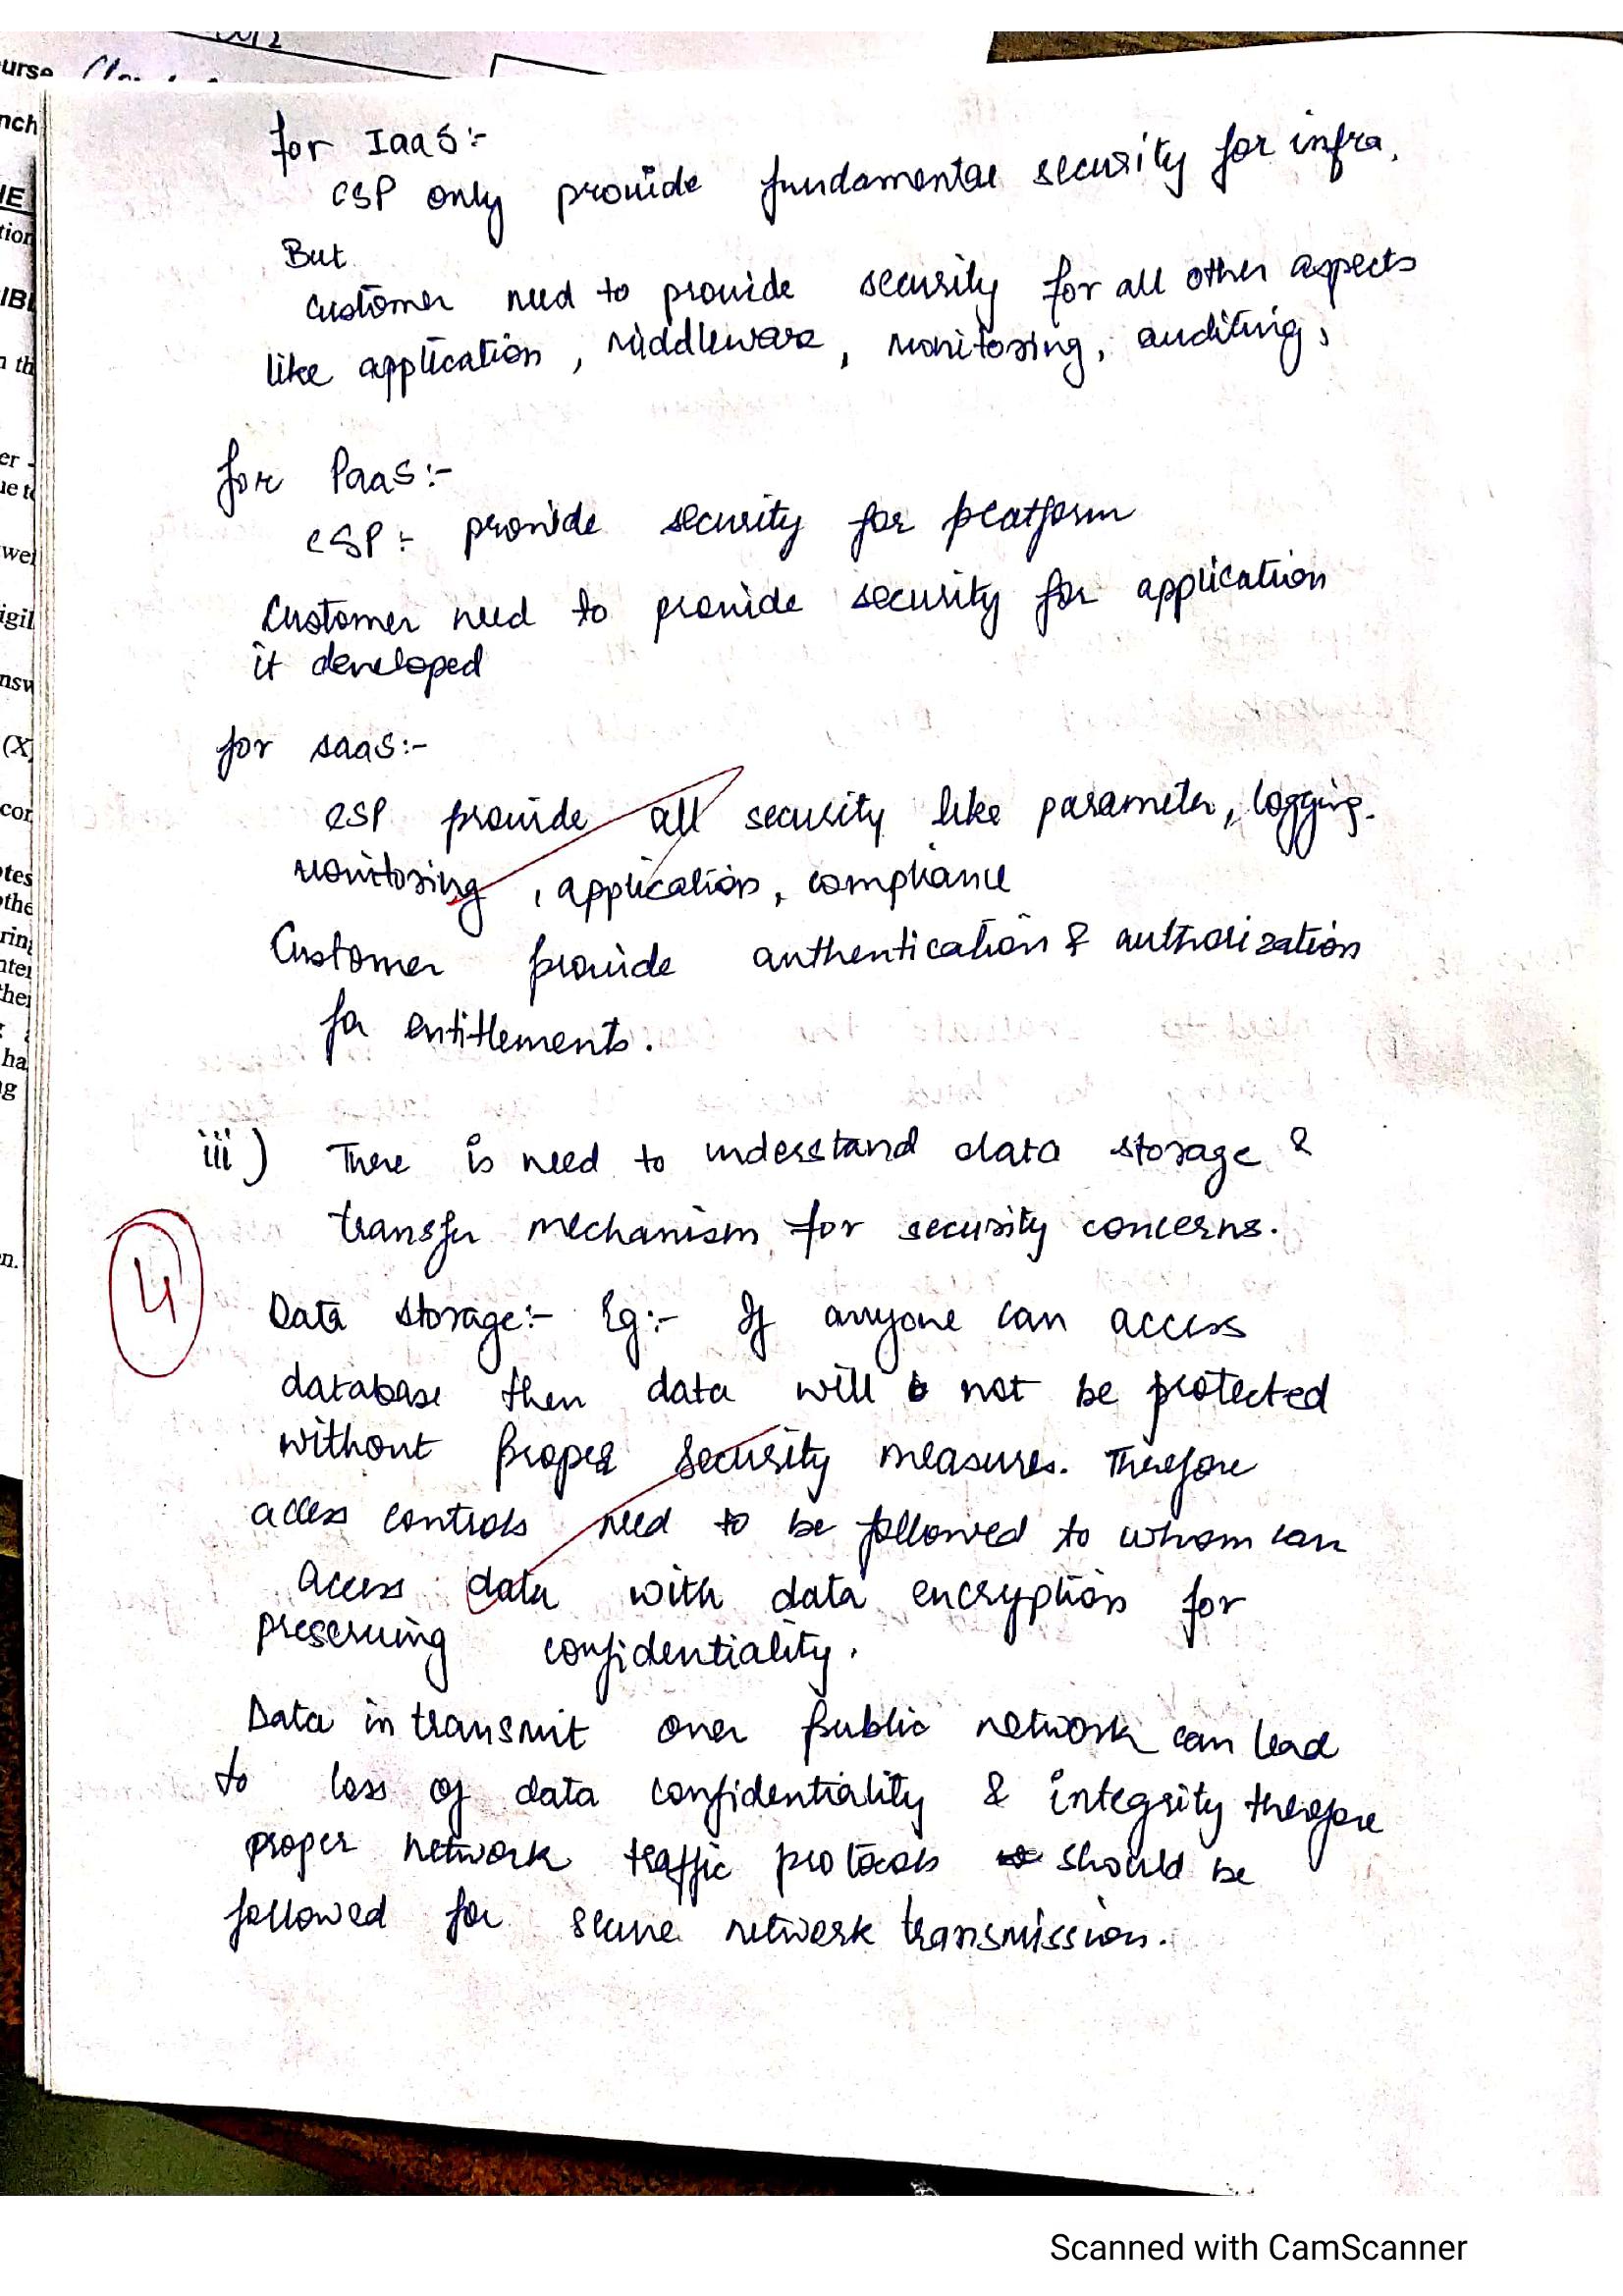 urse
nch
IE
tion
IBL
n th
er -
ue to
wer
igil
nsw
(X
cor
otes
othe
ring
nter
ther
ha
ng
en.
for IaaS:-
CSP only provide fundamental security for infra.
But
customer need to provide security for all other aspects
like application, middleware, monitoring, auditing,
for PaaS:-
CSP:- provide security for platform
Customer need to provide security for application
it developed
for SaaS:-
CSP provide all security like parameter, logging.
monitoring, application, compliance
Customer provide authentication & authorization
for entitlements.
iii) There is need to understand data storage &
transfer mechanism for security concerns.
4
Data storage:- Eg:- If anyone can access
database then data will not be protected
without proper security measures. Therefore
access controls need to be followed to whom can
access data with data encryption for
preserving confidentiality.
Data in transmit over public network can lead
to loss of data confidentiality & integrity therefore
proper network traffic protocols should be
followed for secure network transmission.
Scanned with CamScanner